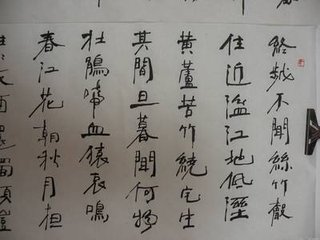 終歲不聞絲竹聲
住近湓江地低溼
黃蘆苦竹繞宅生
其間旦暮聞何物
杜鵑啼血猿哀鳴
春江花朝秋月